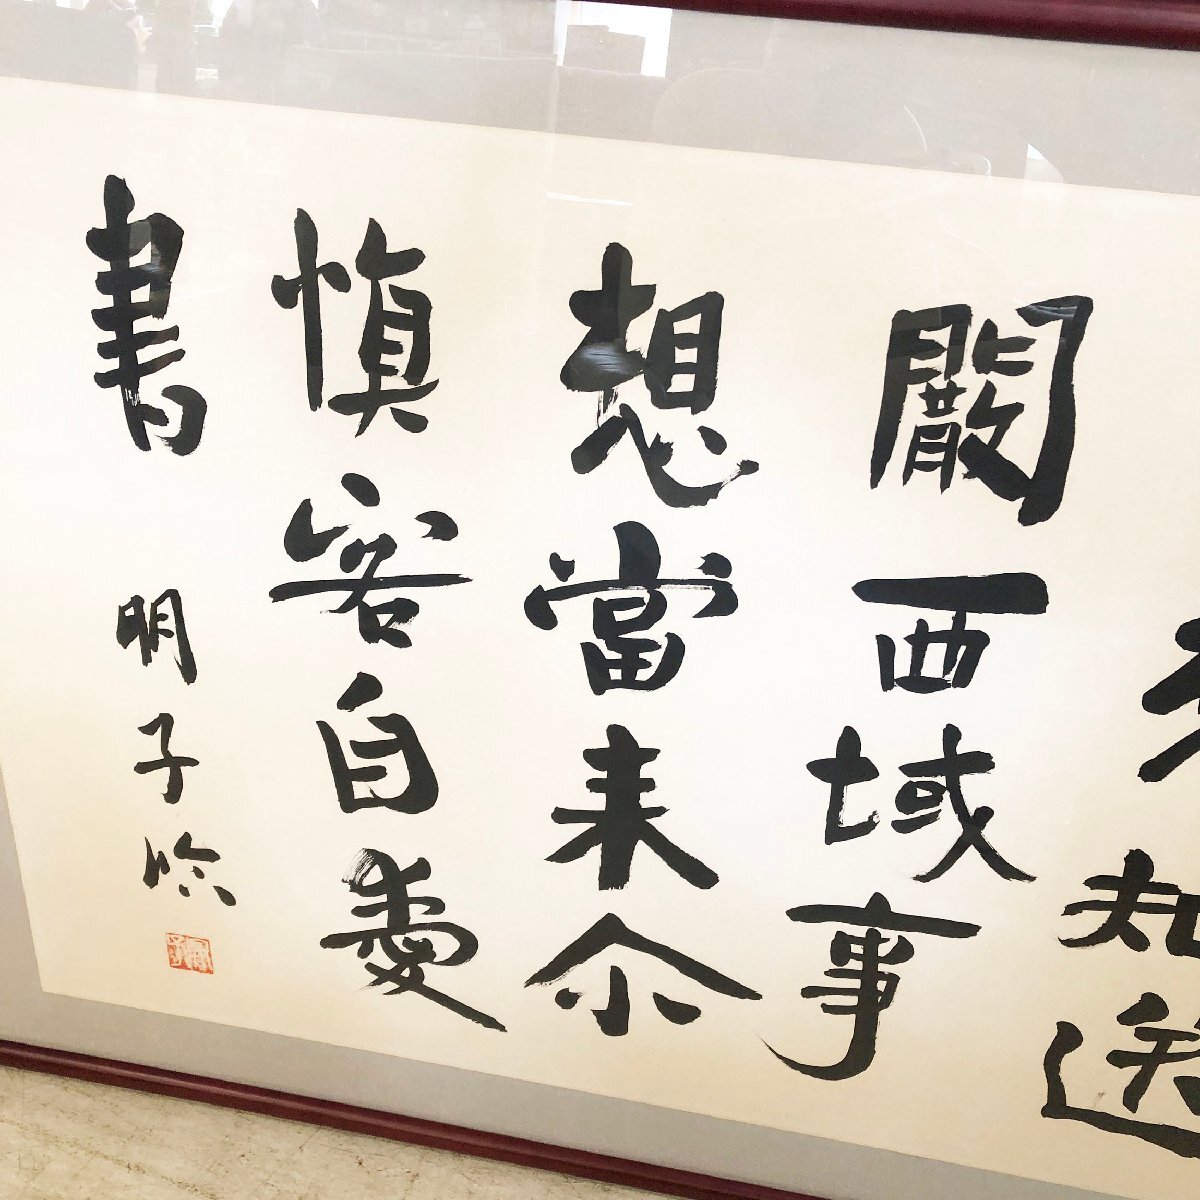 知送
闞西域事
想當来尒
慎容自愛
書 明子吟